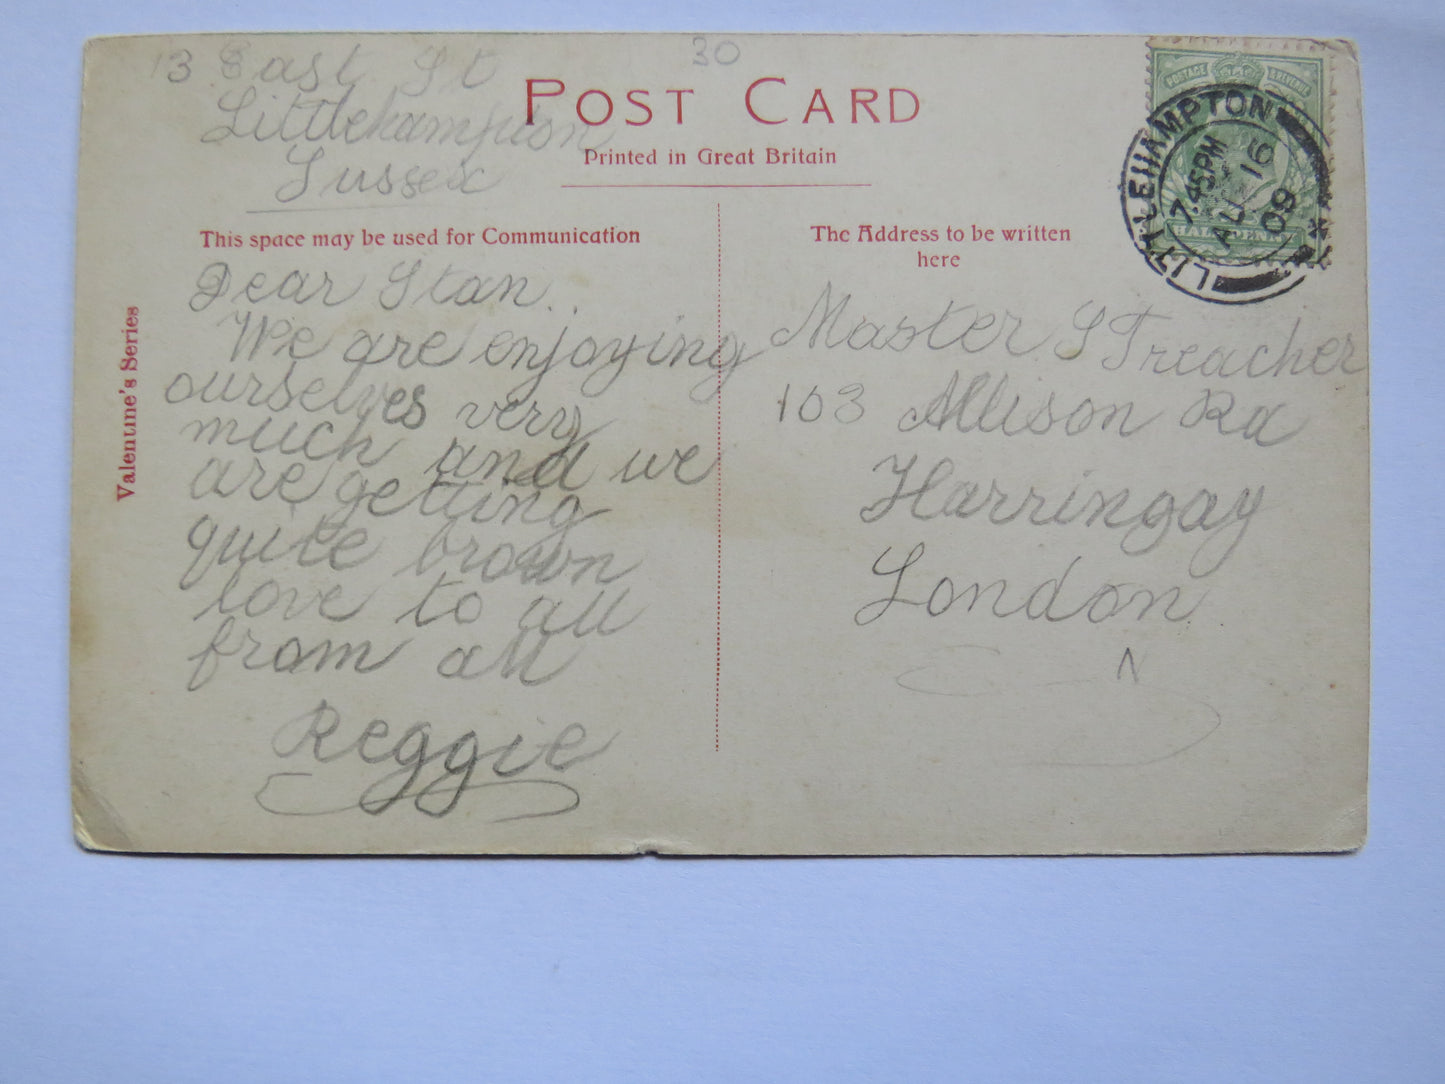 13 East St
Littlehampton
Sussex
30
POST CARD
Printed in Great Britain
This space may be used for Communication
The Address to be written
here
Valentine's Series
Dear Stan.
We are enjoying
ourselves very
much and we
are getting
quite brown
love to all
from all
Reggie
Master S Treacher
103 Allison Rd
Harringay
London
N
POSTAGE REVENUE
HALFPENNY
LITTLEHAMPTON
7.45PM
AU 16
09